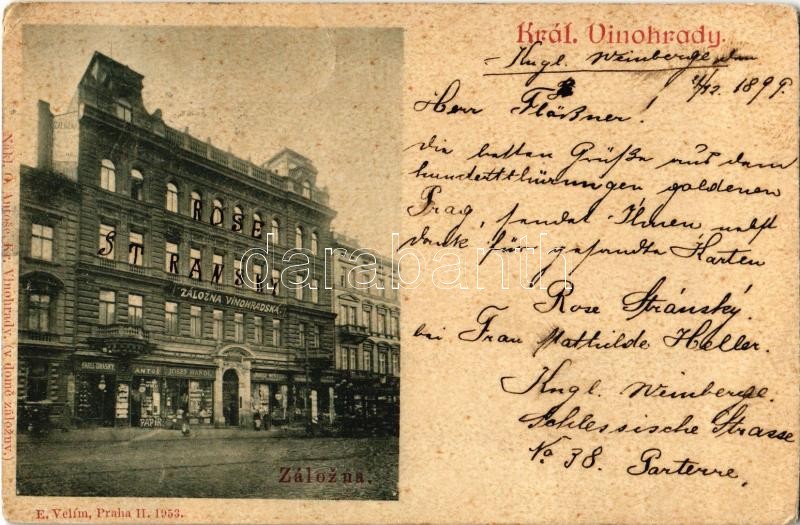 Král. Vinohrady.
Kngl. Weinberge den
21/12. 1899.
Herr Flößner!
die besten Grüße aus dem
hundertthürmigen goldenen
Prag, sendet Ihnen, nebst
dank für gesandte Karten
Rose Stránský.
bei Frau Mathilde Heller.
Kngl. Weinberge.
Schlessische Strasse
No. 38. Parterre.
ROSE
STRANSKY
ZÁLOŽNA VINOHRADSKÁ
ANTOŠ JOSEF HANDL
PAPÍR
Záložna.
Nákl. O. Antoše, Kr. Vinohrady. (v domě záložny.)
E. Velím, Praha II. 1953.
darabanth